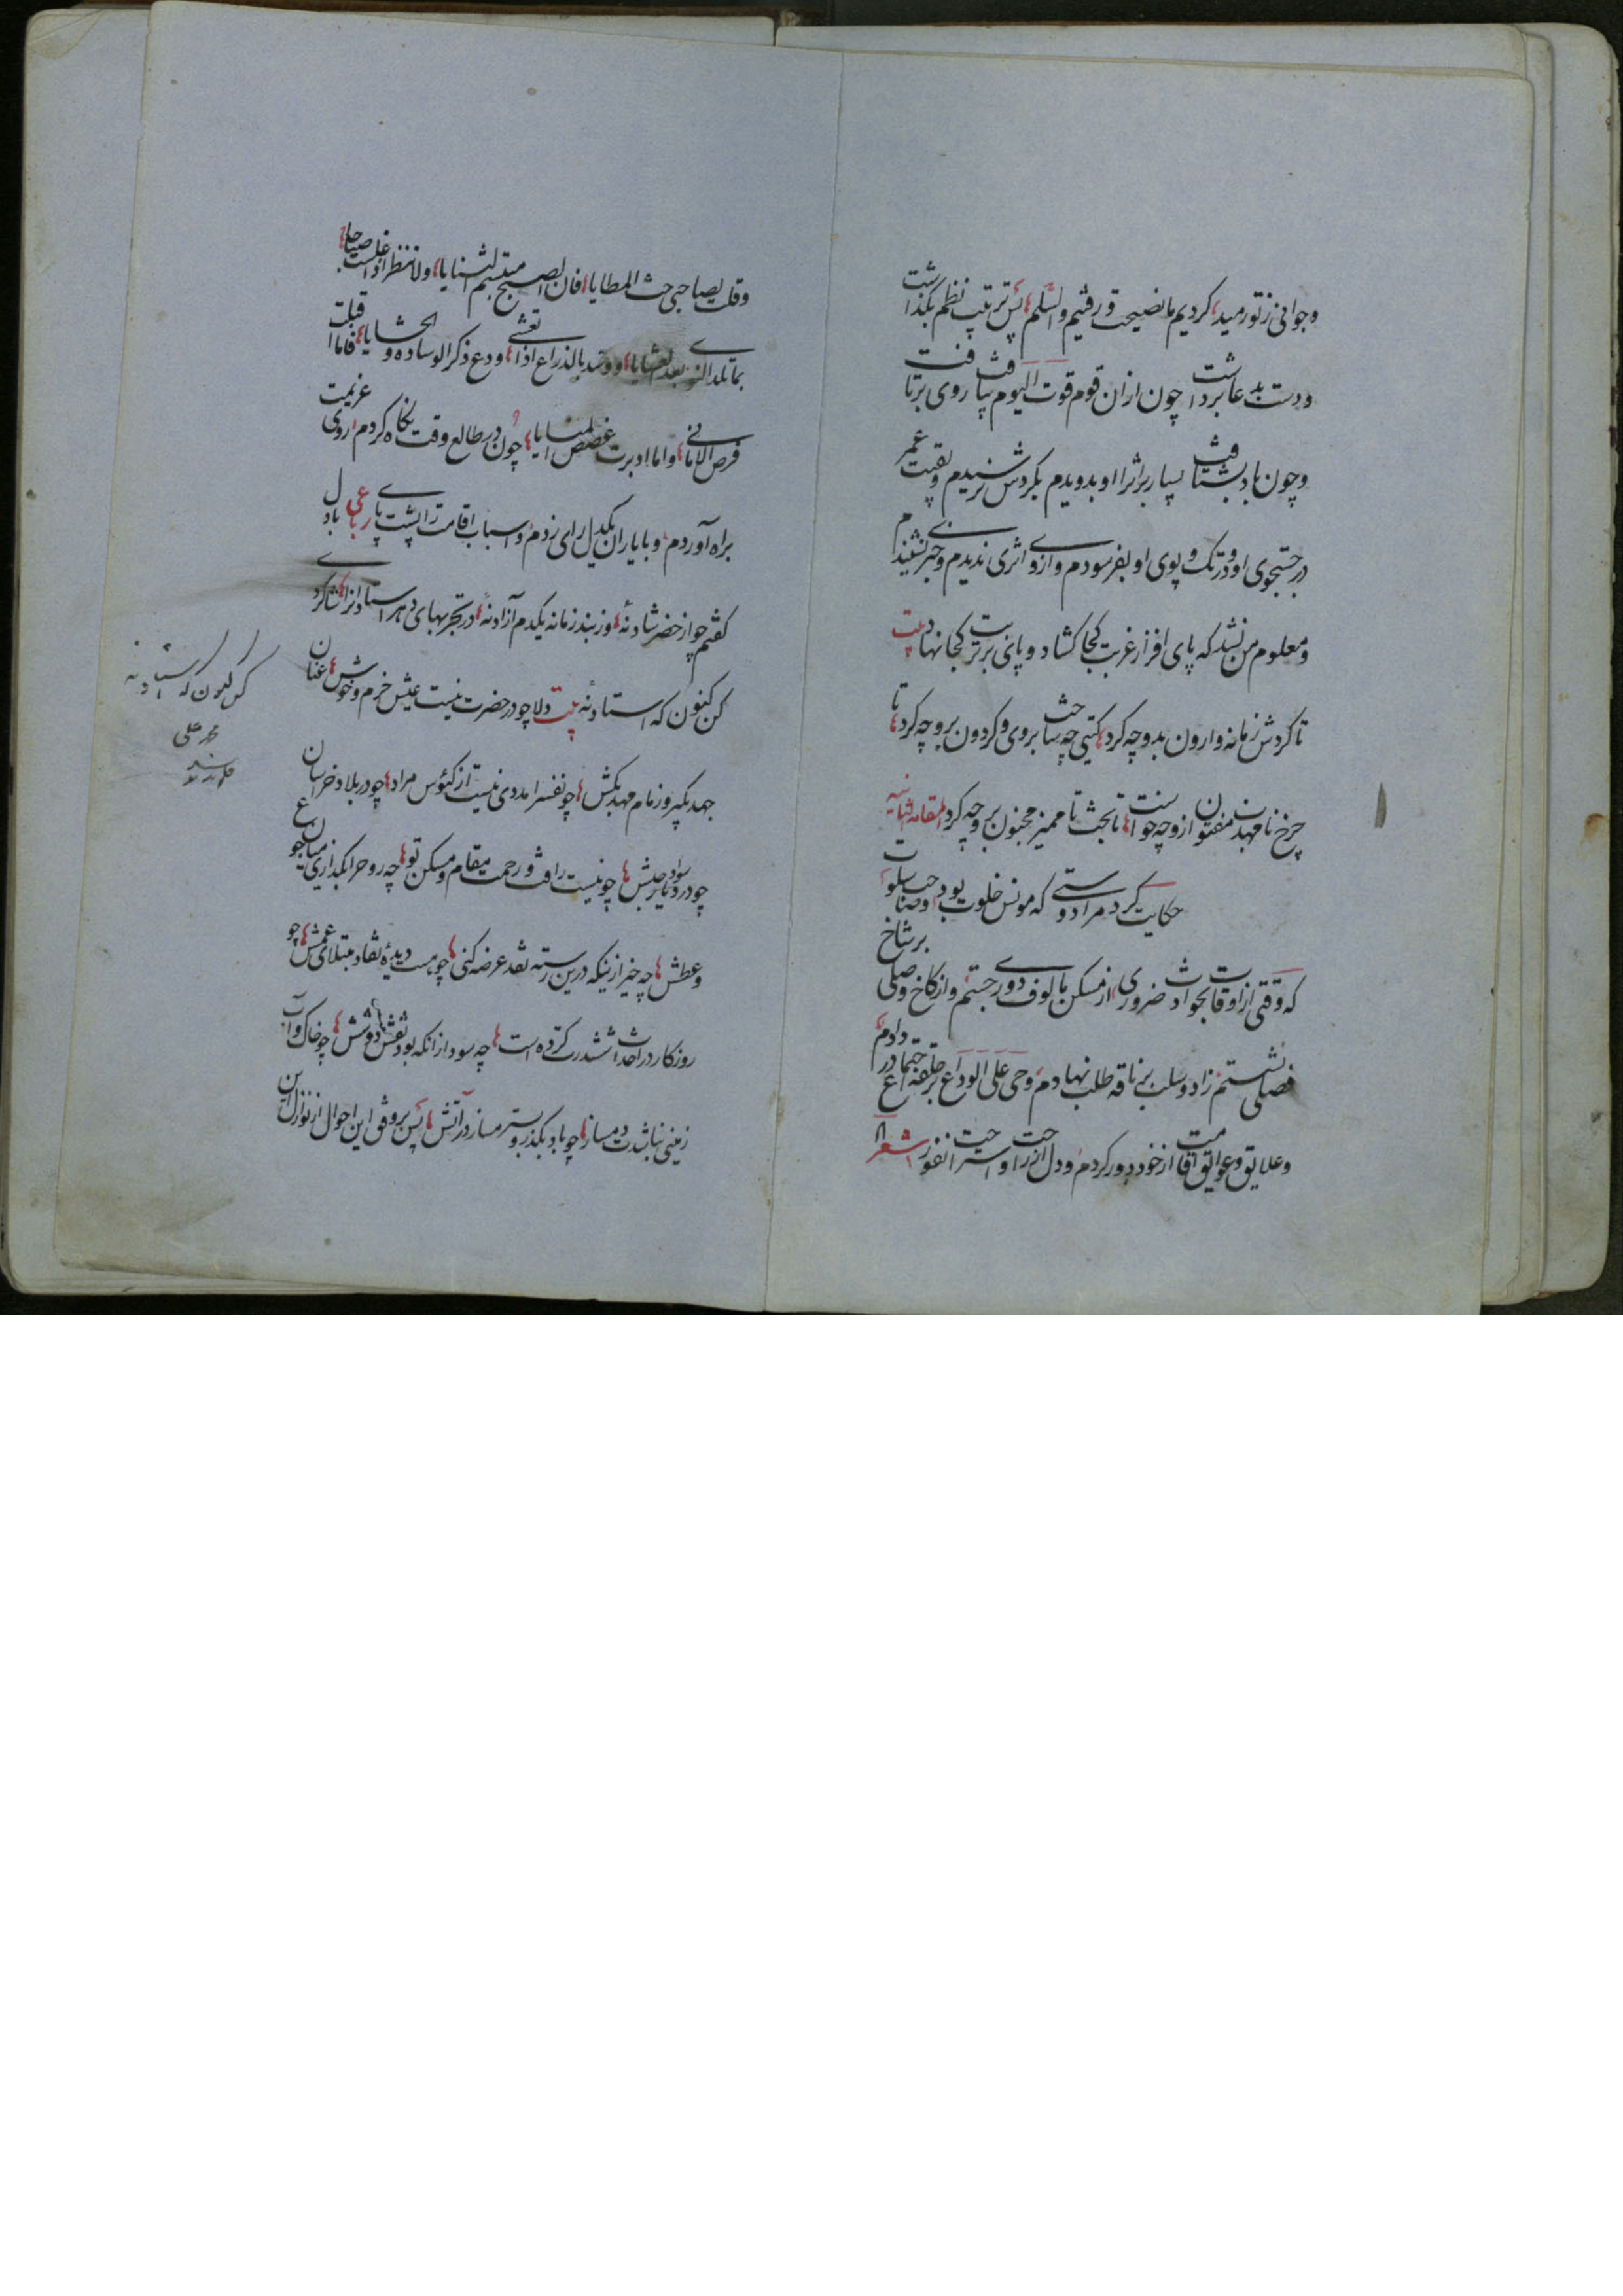 وجوانی ز تو رمید کردیم ما نصیحت و رفتیم والسلم پس ترتیب نظم بگذاشت
ودست بدعا برداشت چون ازان قوم قوت الیوم بیافت روی برتافت
وچون باد بشتافت بسیار بر اثر او بدویدم بگردش نرسیدم وبقیت عمر
در جستجوی او ودر تک وپوی او بفرسودم وازوی اثری ندیدم وخبری نشنیدم
ومعلوم من نشد که پای افزار غربت کجا گشاد وپای بر تربت کجا نهاد بیت
تا گردش زمانه وارون بدو چه کرد گیتی چه ساخت بروی وگردون برو چه کرد تا
چرخ نامهذب مفتون ازو چه خواست تا بخت نا ممیز مجنون برو چه کرد المقامة الثانیه
حکایت کرد مرا دوستی که مونس خلوت بود وصاحب سلوت
که وقتی از اوقات بحوادث ضروری از مسکن مالوف دوری جستم واز کاخ وصلی بر شاخ
فصلی نشستم زاد وسلب بر ناقه طلب نهادم وحی علی الوداع بر حلقه اجتماع در دادم
وعلایق وعوایق اقامت از خود دور کردم ودل از راحت واستراحت نفور شعر
وقلت لصاحبی حث المطایا فان الصبح مبتسم الثنایا ولا تنظر اذا غلست صباحا
بعد العشایا ووسد بالذراع اذا تغشی ودع ذکر الوساده والحشایا فاما اقبلت
فرص الامانی واما ادبرت غصص المنایا چون در طالع وقت نگاه کردم روی عزیمت
براه آوردم وبا یاران یکدل رای زدم واسباب اقامت را پشت پای رباعی با دل
گفتم چو از حضر شاد نهٔ وز بند زمانه یکدم آزاد نهٔ در تجربهای دهر استادانرا شاگردی
کن کنون که استاد نهٔ بیت دلا چو در حضرت نیست عیش خرم وخوش عنان
جهد بگیر وزمام مهد بکش چو نفس را مددی نیست از کئوس مراد چو در بلاد خراسان
چو در دیار حبش چو نیست رافت ورحمت مقام ومسکن تو چه روح را بگذاری میان جوع
وعطش چه خیر ازینکه درین رسته نقد عرضه کنی چو هست دیدهٔ نقاد مبتلای عمش چو
روزگار در احداث ششدرت کرده است چه سود ازانکه بود نقش دو شش چو خاک وآب
زمینی نباشدت دمساز چو باد بگذر وبستر مساز در آتش پس بر وفق این احوال از نوازل این
کن کنون که استاد نه